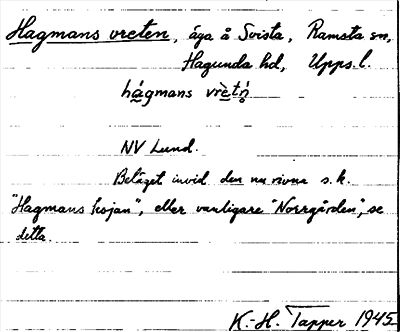 Hagmans vreten, äga å Svista, Ramsta sn,
Hagunda hd, Upps. l.
hágmans vrètǹ
NV Lund.
Beläget invid den nu rivna s.k.
"Hagmans kojan", eller vanligare "Norrgården", se
detta.
K.-H. Tapper 1945